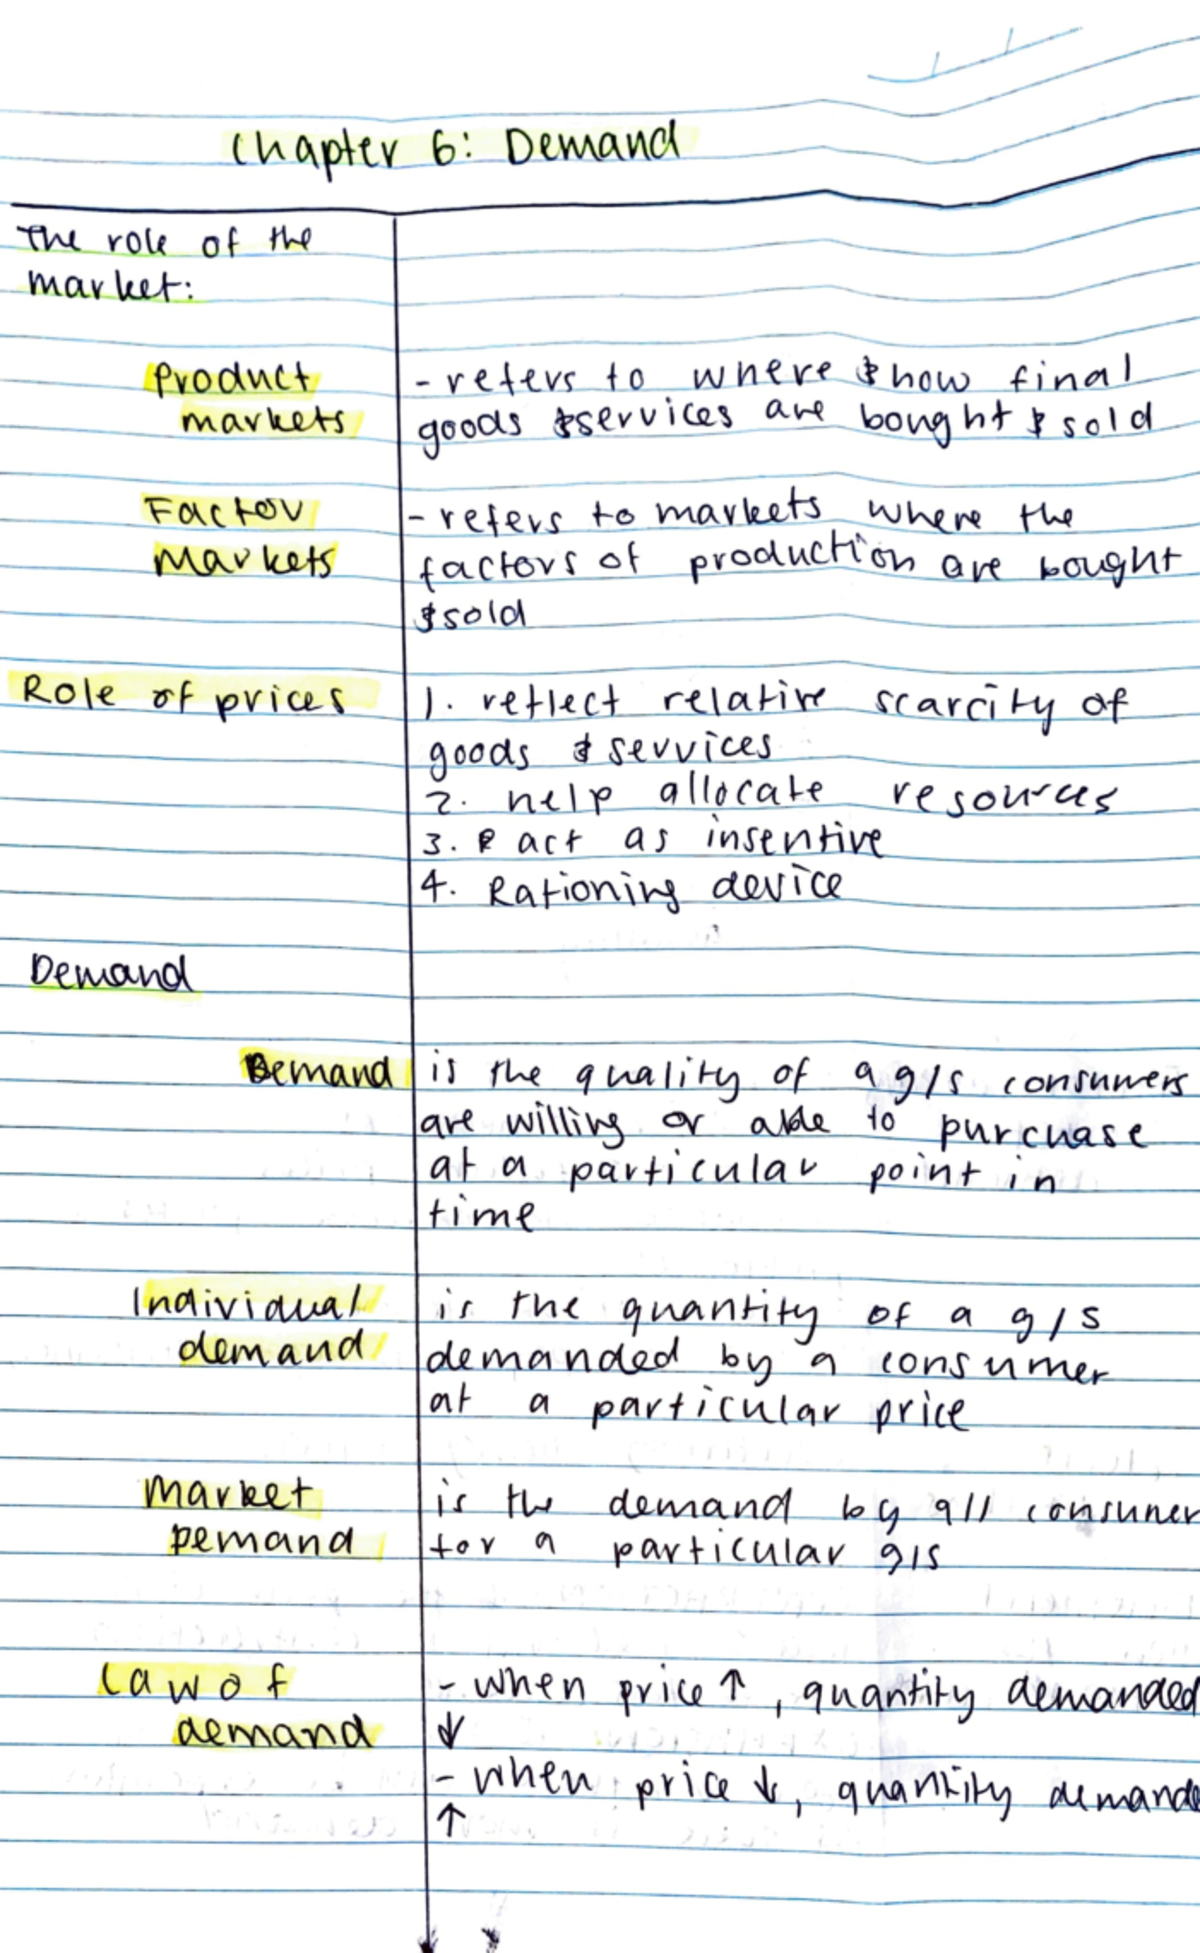 Chapter 6: Demand
The role of the
market:
Product
markets
- refers to where & how final
goods & services are bought & sold
Factor
Markets
- refers to markets where the
factors of production are bought
& sold
Role of prices
1. reflect relative scarcity of
goods & services
2. help allocate resources
3. act as insentive
4. Rationing device
Demand
Demand
is the quality of a g/s consumers
are willing or able to purchase
at a particular point in
time
Individual
demand
is the quantity of a g/s
demanded by a consumer
at a particular price
Market
Demand
is the demand by all consumer
for a particular g/s
Law of
demand
- when price ↑, quantity demanded
↓
- when price ↓, quantity demande
↑